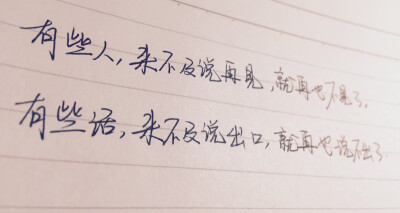 有些人，来不及说再见，就再也不见了。
有些话，来不及说出口，就再也说不出了